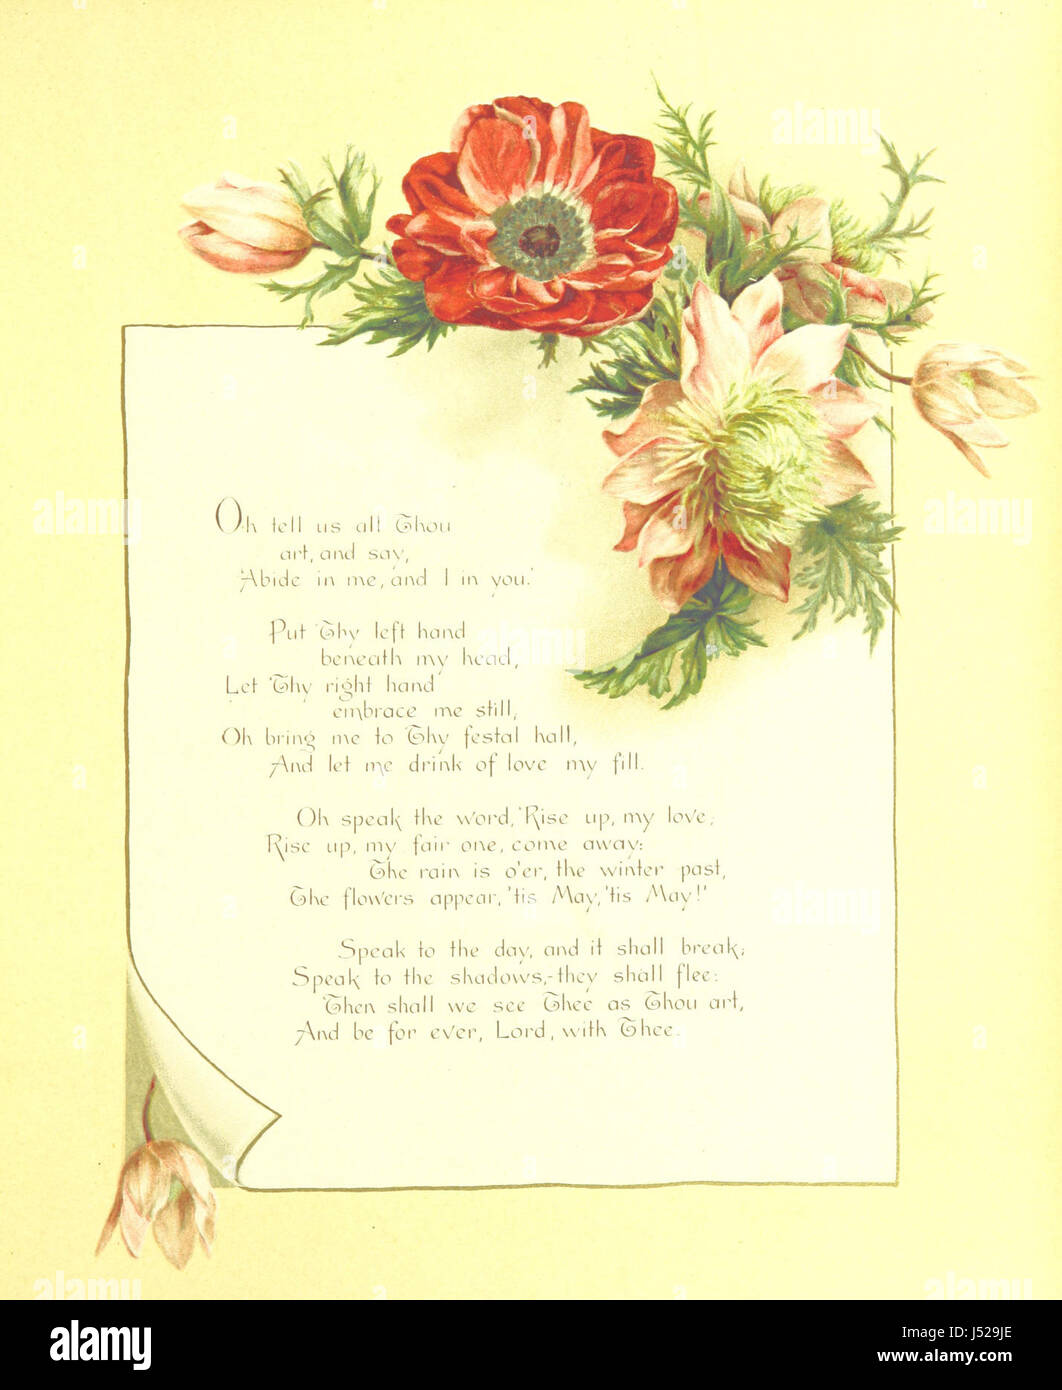 Oh tell us all Thou
art, and say,
'Abide in me, and I in you.'
Put Thy left hand
beneath my head,
Let Thy right hand
embrace me still,
Oh bring me to Thy festal hall,
And let me drink of love my fill.
Oh speak the word, 'Rise up, my love;
Rise up, my fair one, come away:
The rain is o'er, the winter past,
The flowers appear, 'tis May, 'tis May!'
Speak to the day, and it shall break;
Speak to the shadows,-they shall flee:
Then shall we see Thee as Thou art,
And be for ever, Lord, with Thee.
alamy
Image ID: J529JE
www.alamy.com